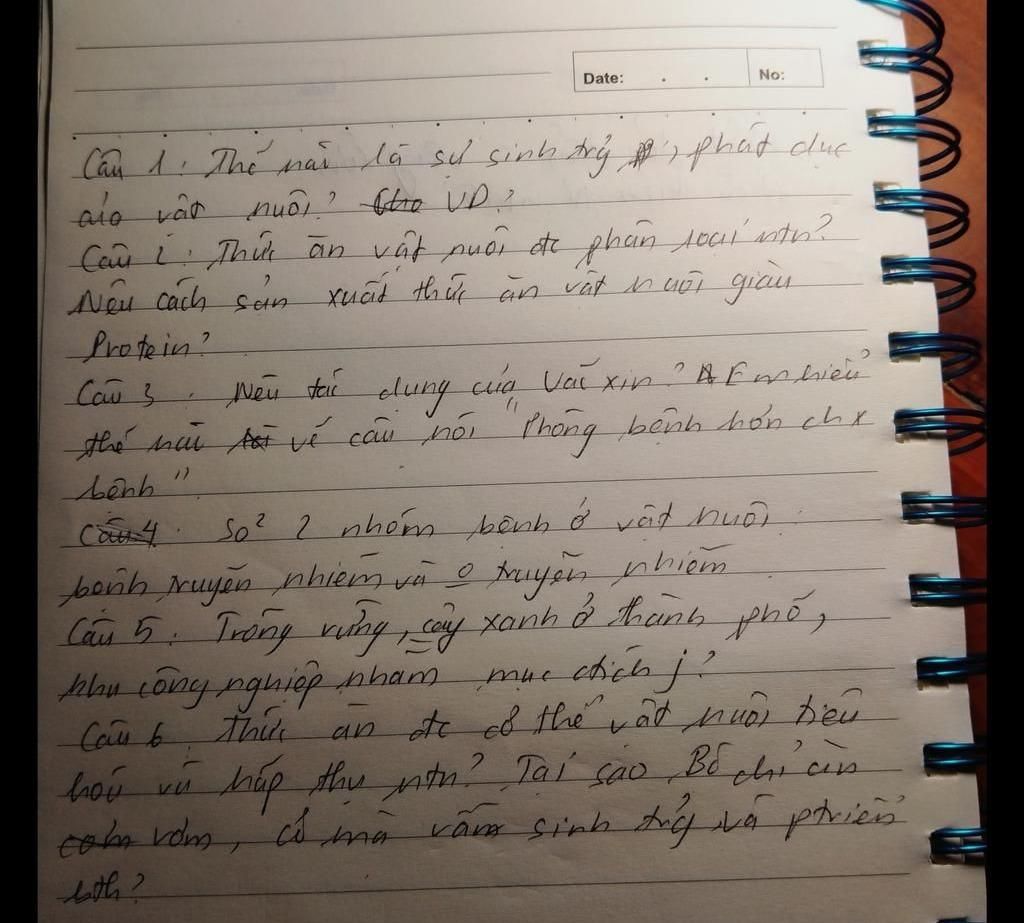 Date: . . No:
Câu 1: Thế nài là sự sinh trg, phát dục
của vật nuôi? Cho VD?
Câu 2: Thức ăn vật nuôi đc phân loại ntn?
Nêu cách sản xuất thức ăn vật nuôi giàu
Protein?
Câu 3: Nêu tác dụng của Vắc xin? Em hiểu
thế nài về câu nói "Phòng bệnh hơn ch~~x~~
bệnh".
Câu 4: So² 2 nhóm bệnh ở vật nuôi:
bệnh truyền nhiễm và o truyền nhiễm
Câu 5: Trồng rừng, cây xanh ở thành phố,
khu công nghiệp nhằm mục đích j?
Câu 6: Thức ăn đc cơ thể vật nuôi tiêu
hoá và hấp thụ ntn? Tại sao Bò chỉ ăn
rơm, cỏ mà vẫn sinh trg và ptriển
bth?